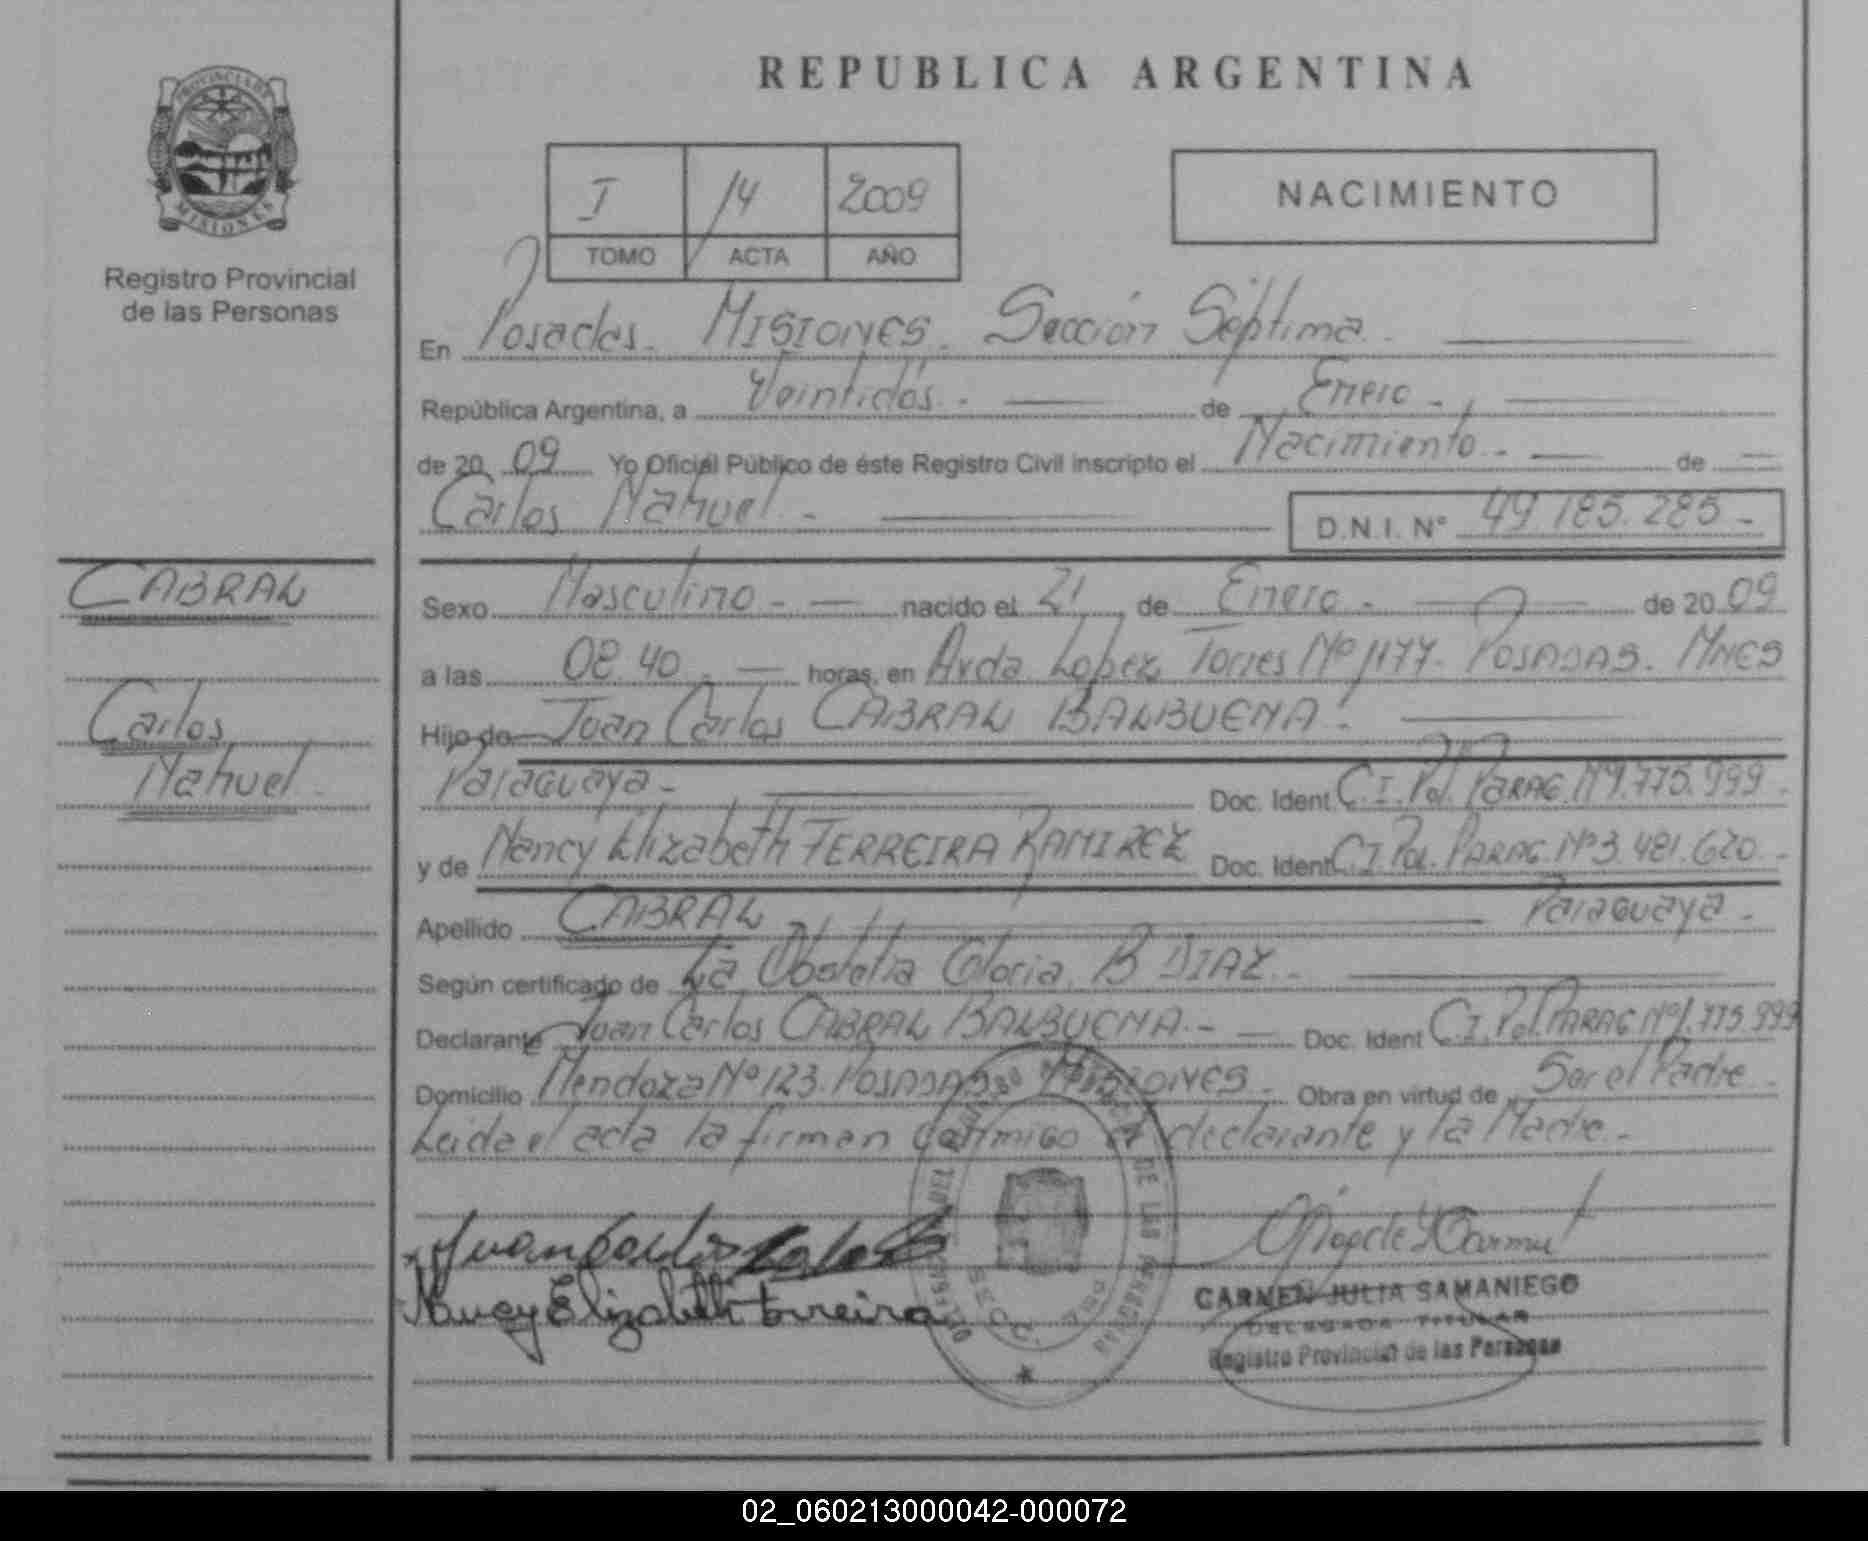 REPUBLICA ARGENTINA
PROVINCIA DE MISIONES
Registro Provincial
de las Personas
I 14 2009
TOMO ACTA AÑO
NACIMIENTO
En Posadas. MISIONES. Sección Séptima.
República Argentina, a Veintidós. de Enero.
de 20 09 Yo Oficial Público de éste Registro Civil inscripto el Nacimiento. de
Carlos Nahuel. D.N.I. N° 49.185.285
CABRAL
Carlos
Nahuel
Sexo Masculino nacido el 21 de Enero. de 20 09
a las 08.40. horas, en Avda. Lopez Torres Nº 1177. POSADAS. MNES
Hijo de Juan Carlos CABRAL BALBUENA.
Paraguaya Doc. Ident C.I. Pol. PARAG. Nº1.775.999.
y de Nancy Elizabeth FERREIRA RAMIREZ Doc. Ident C.I. Pol. PARAG. Nº3.481.620.
Apellido CABRAL Paraguaya
Según certificado de La Obstetra Gloria. B DIAZ.
Declarante Juan Carlos CABRAL BALBUENA. Doc. Ident C.I. Pol. PARAG Nº1.775.999
Domicilio Mendoza Nº 123. POSADAS MISIONES. Obra en virtud de Ser el Padre.
Leida el acta la firman conmigo el declarante y la Madre.
Juan Carlos
Nancy Elizabeth Ferreira
CARMEN JULIA SAMANIEGO
DELEGADA TITULAR
Registro Provincial de las Personas
02_060213000042-000072